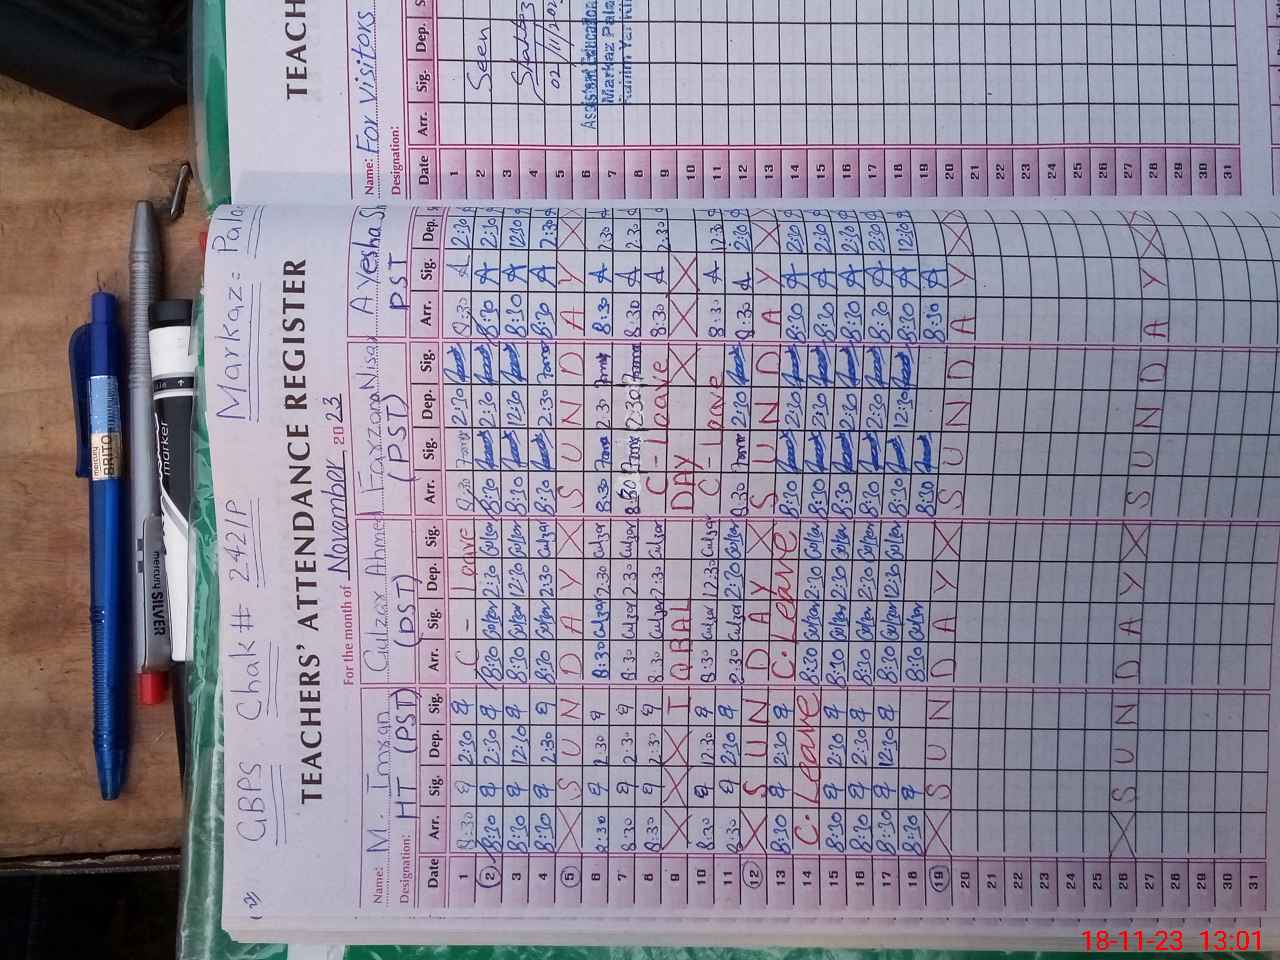 GBPS Chak# 242/P Markaz:
TEACHERS' ATTENDANCE REGISTER
For the month of November 2023
Name: M. Imran Gulzar Ahmed Farzana Nisa Ayesha
Designation: HT (PST) (PST) (PST) PST
Date Arr. Sig. Dep. Sig. Arr. Sig. Dep. Sig. Arr. Sig. Dep. Sig. Arr. Sig. Dep.
1 8:30 2:30 C - Leave 8:30 2:30 8:30 2:30
2 8:30 2:30 8:30 2:30 8:30 2:30 8:30 2:30
3 8:30 12:30 8:30 12:30 8:30 12:30 8:30 12:30
4 8:30 2:30 8:30 2:30 8:30 2:30 8:30 2:30
5 X S U N D A Y X S U N D A Y X
6 8:30 2:30 8:30 2:30 8:30 2:30 8:30 2:30
7 8:30 2:30 8:30 2:30 8:30 2:30 8:30 2:30
8 8:30 2:30 8:30 2:30 C - Leave 8:30 2:30
9 X X X I QBAL DAY X X X
10 8:30 12:30 8:30 12:30 C - Leave 8:30 12:30
11 8:30 2:30 8:30 2:30 8:30 2:30 8:30 2:30
12 X S U N D A Y X S U N D A Y X
13 8:30 2:30 C. Leave 8:30 2:30 8:30 2:30
14 C. Leave 8:30 2:30 8:30 2:30 8:30 2:30
15 8:30 2:30 8:30 2:30 8:30 2:30 8:30 2:30
16 8:30 2:30 8:30 2:30 8:30 2:30 8:30 2:30
17 8:30 12:30 8:30 12:30 8:30 12:30 8:30 12:30
18 8:30 8:30 8:30 8:30
19 X S U N D A Y X S U N D A Y X
20
21
22
23
24
25
26 X S U N D A Y X S U N D A Y X
27
28
29
30
31
TEACH
Name: For Visitors
Designation:
Date Arr. Sig. Dep.
1
2 Seen
3
4
5 02/11/202
6 Assistant Education
7 Markaz
8
9
10
11
12
13
14
15
16
17
18
19
20
21
22
23
24
25
26
27
28
29
30
31
mercury
BRITO
marker
mercury SILVER
18-11-23 13:01